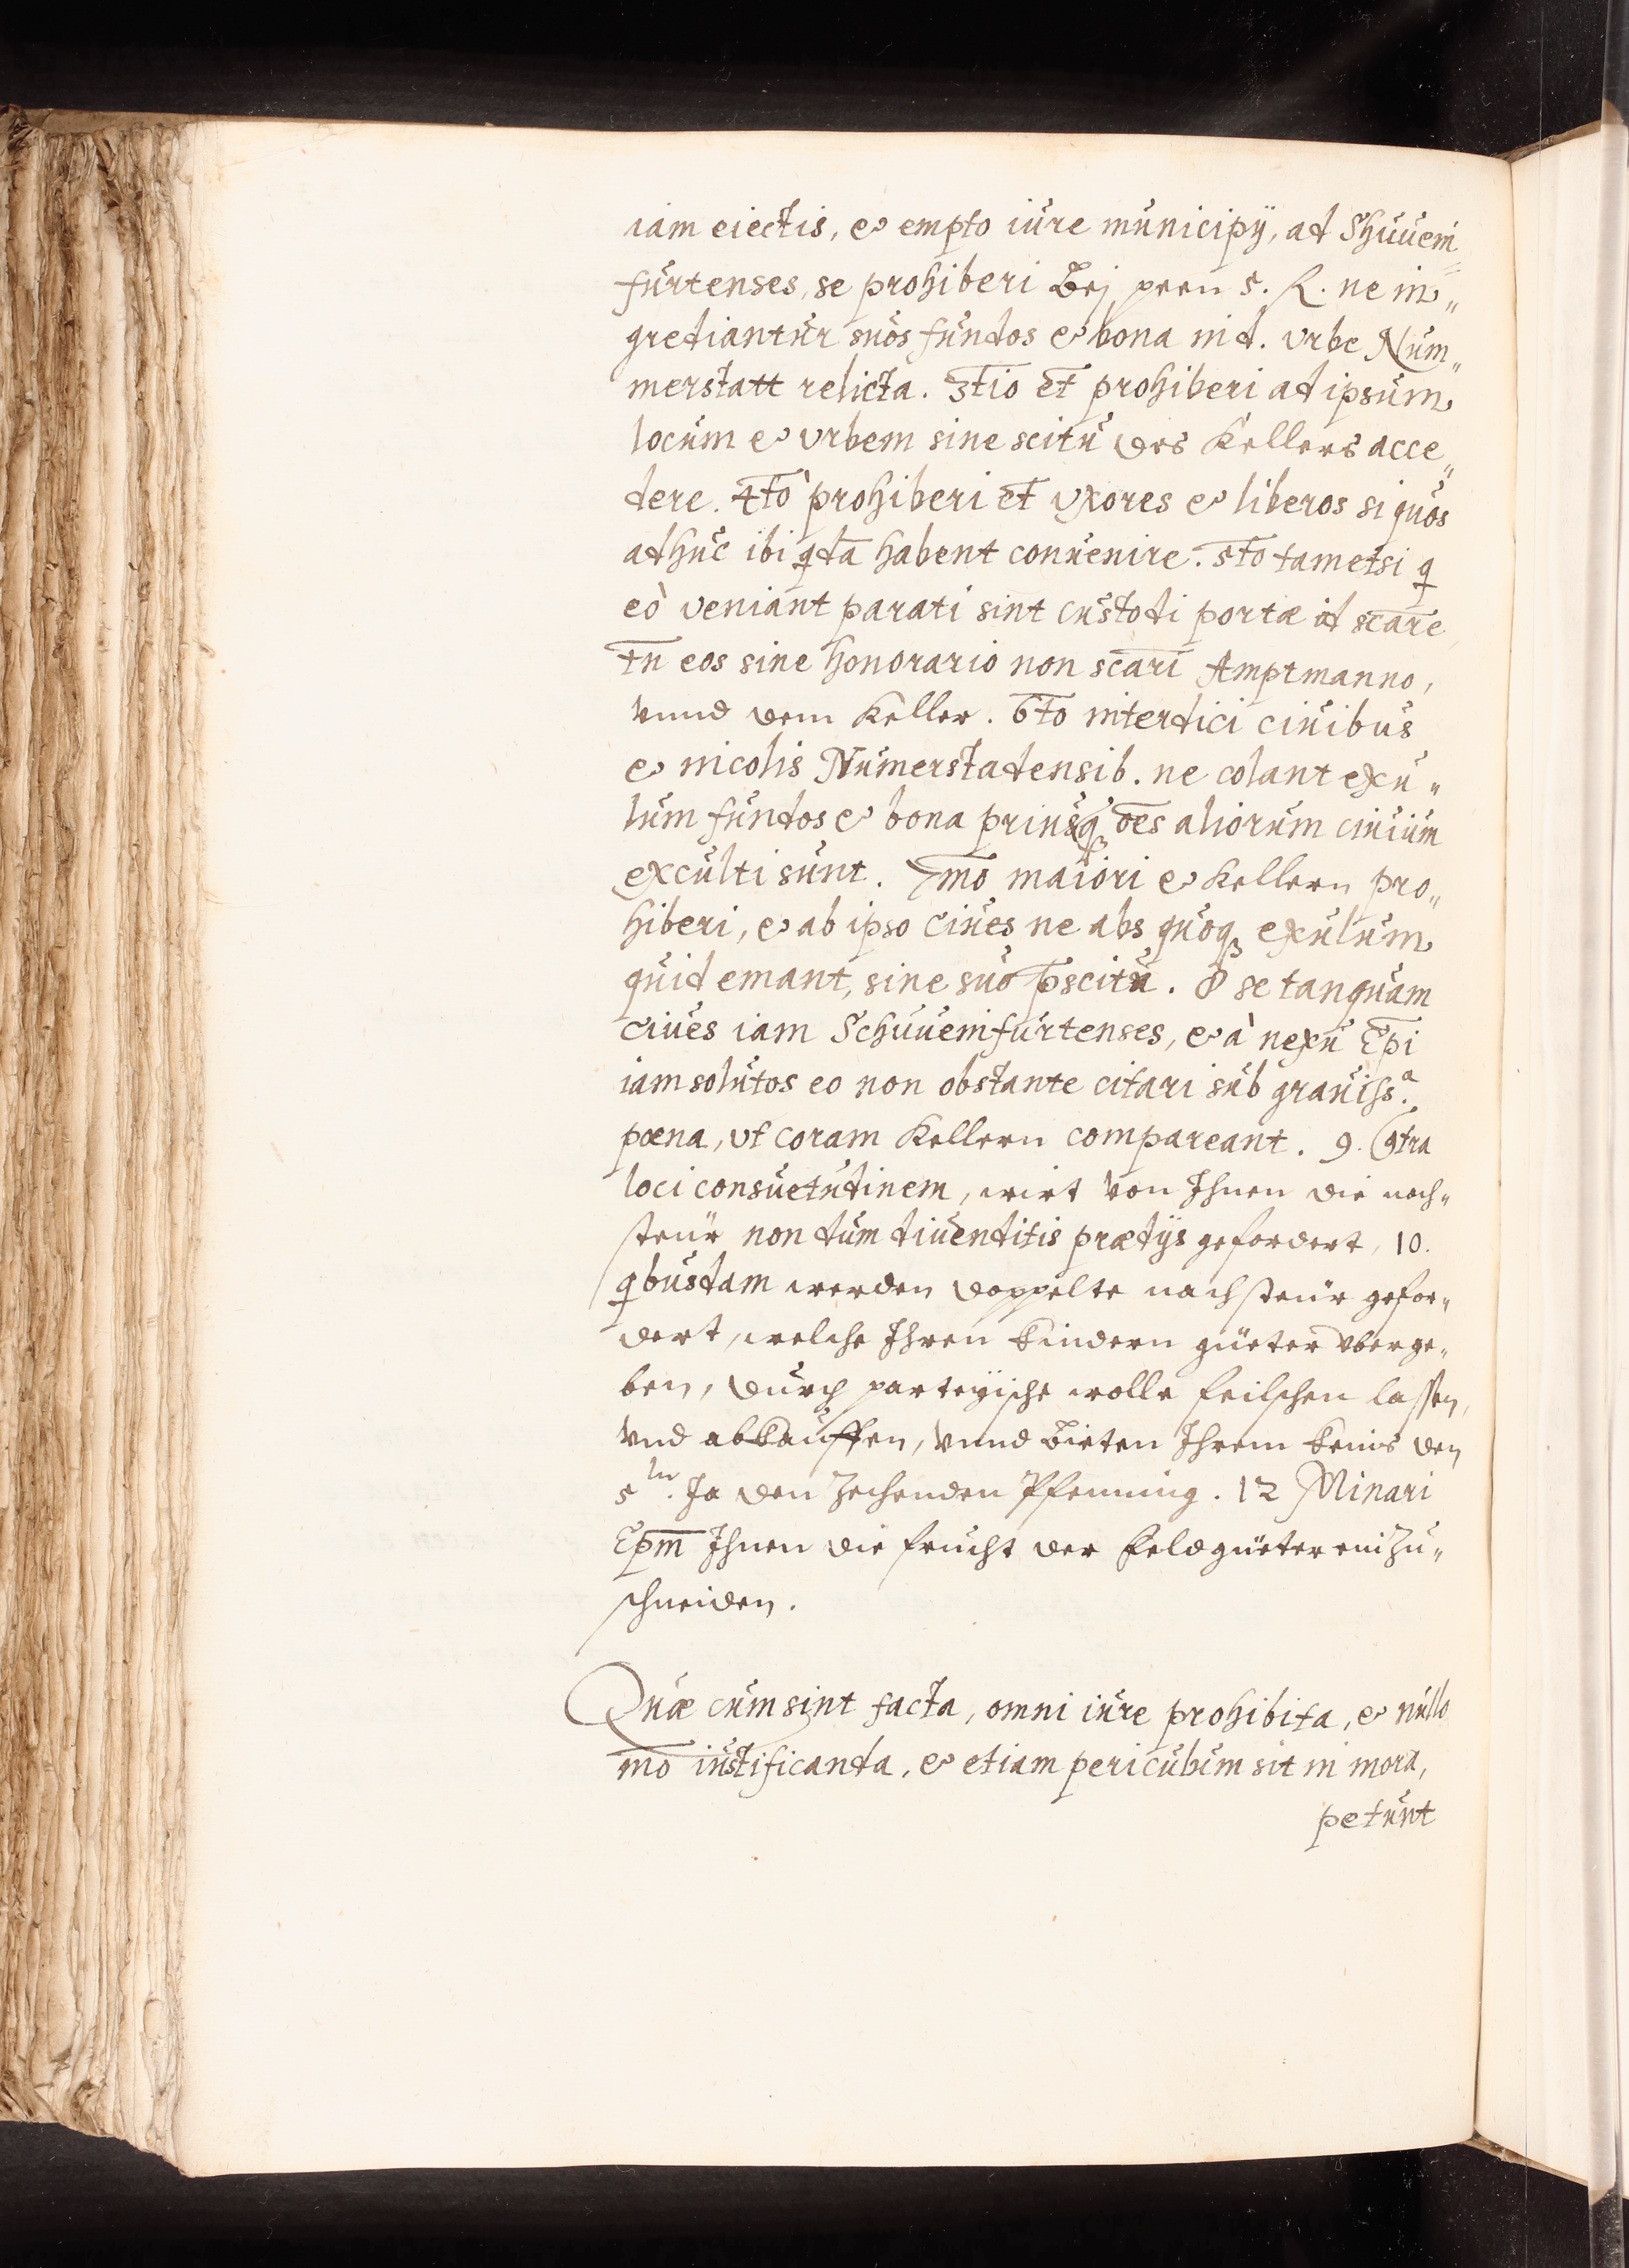 iam eiectis, et empto iure municipÿ, ad Shuuein
furtenses, se prohiberi Bej peen 5. R. ne in„
grediantur suos fundos et bona in d. vrbe Num„
merstatt relicta. 3tio et prohiberi ad ipsum
locum et vrbem sine scitu des Kellers acce„
dere. 4to prohiberi et vxores et liberos si quos
adhuc ibi qda habent conuenire. 5to tametsi q
eò veniant parati sint custodi portæ id scare
tn eos sine honorario non scari Amptmanno,
vnnd dem Keller. 6to interdici ciuibus
et incolis Numerstadensib. ne colant exu„
lum fundos et bona priusq oes aliorum ciuium
exculti sunt. 7mo maiori et Kellern pro„
hiberi, et ab ipso ciues ne abs quoq exulum
quid emant, sine suo pscitu. 8 se tanquam
ciues iam Schuueinfurtenses, et à nexu Epi
iam solutos eo non obstante citari sub grauiss.a
pœna, vt coram Kellern compareant. 9. Contra
loci consuetudinem, wirt von Ihnen die nach„
steür non dum diuenditis prædÿs gefordert, 10.
qbusdam werden doppelte nachsteür gefor„
dert, welche Ihren kindern güeter vberge„
ben, durch parteÿische wolle feilschen lassen,
vnd abkauffen, vnnd bieten Ihrem keins den
5tn. Ja den Zehenden Pfenning. 12 Minari
Epm Ihnen die frucht der feldgüeter einzu„
schneiden.
Quæ cum sint facta, omni iure prohibita, et nullo
mo iustificanda, et etiam periculum sit in mora,
petunt